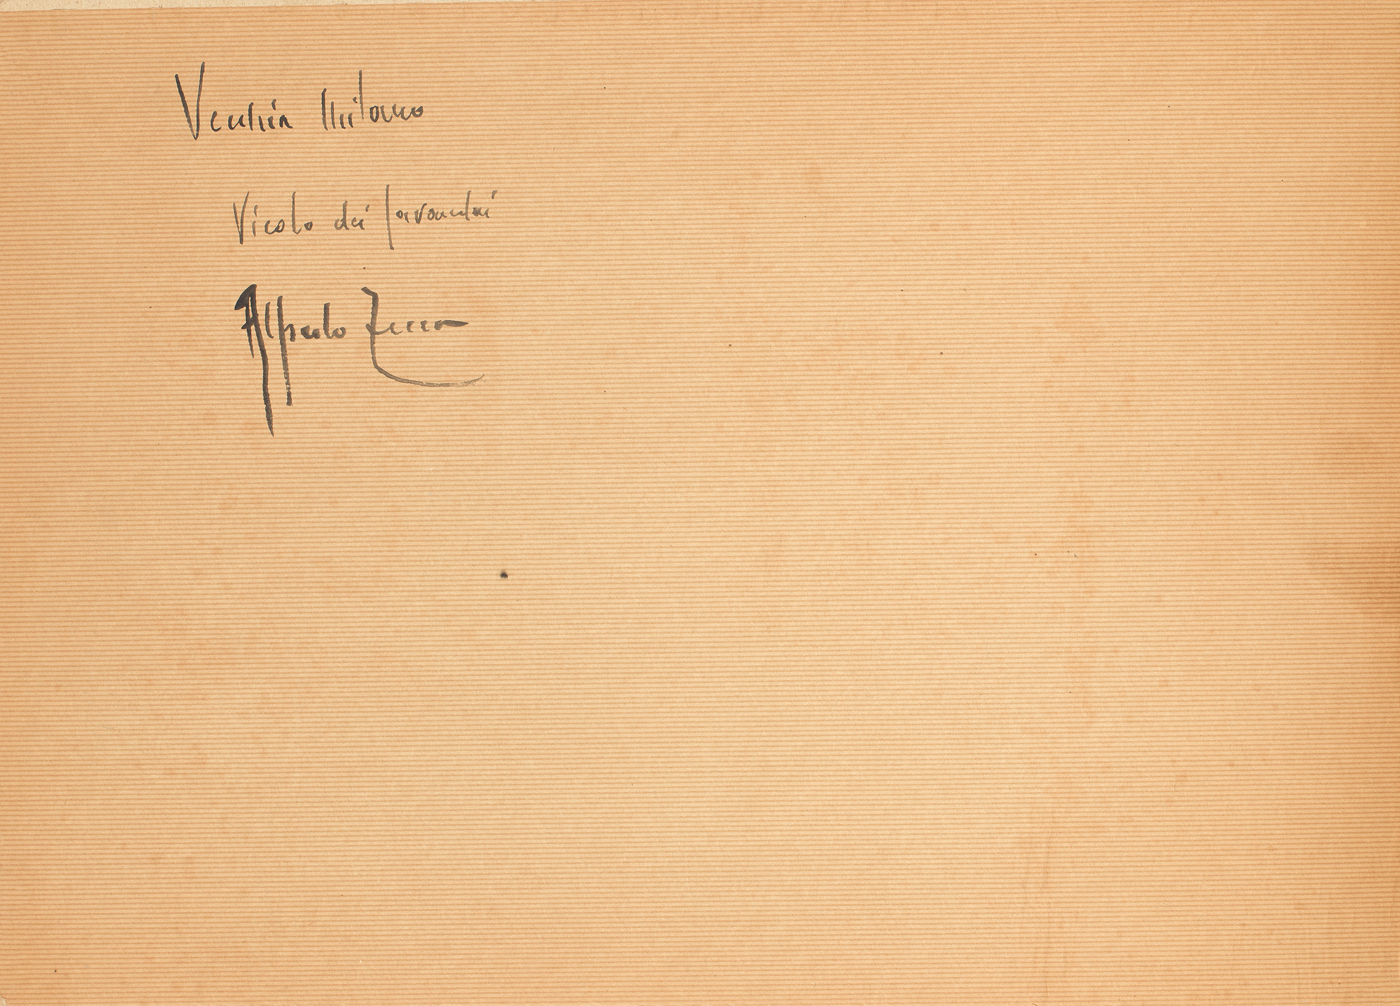 Vechia Milano
Vicolo dei lavandai
Alfredo Zecca